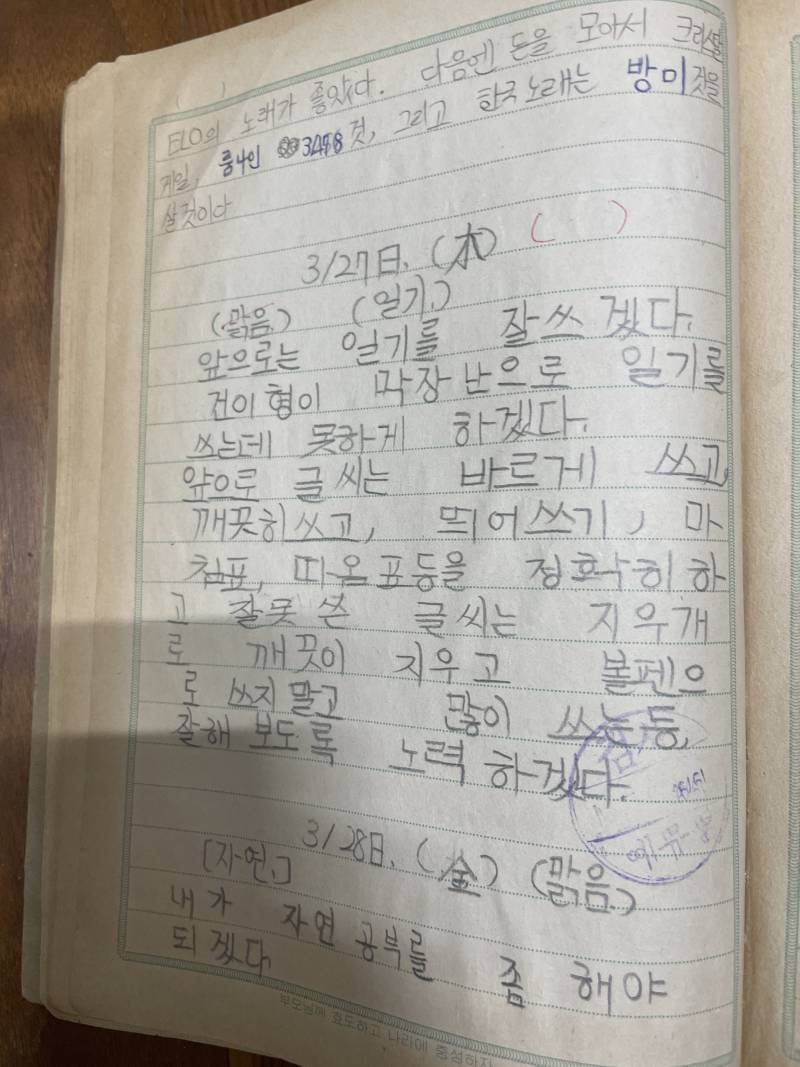 ELO의 노래가 좋았다. 다음엔 돈을 모아서 크리스탈
게일, 룽나인 3478 것, 그리고 한국노래는 방미 것을
살것이다
3/27日. (木) ( )
(맑음.) (일기.)
앞으로는 일기를 잘쓰겠다.
건이형이 막장난으로 일기를
쓰는데 못하게 하겠다.
앞으로 글씨는 바르게 쓰고,
깨끗히쓰고, 띄어쓰기, 마
침표, 따옴표등을 정확히 하
고 잘못 쓴 글씨는 지우개
로 깨끗이 지우고 볼펜으
로 쓰지말고 많이 쓰는 등,
잘해 보도록 노력 하겠다.
3/28日. (金) (맑음.)
[자연.]
내가 자연 공부를 좀 해야
되겠다
부모님께 효도하고 나라에 충성하자